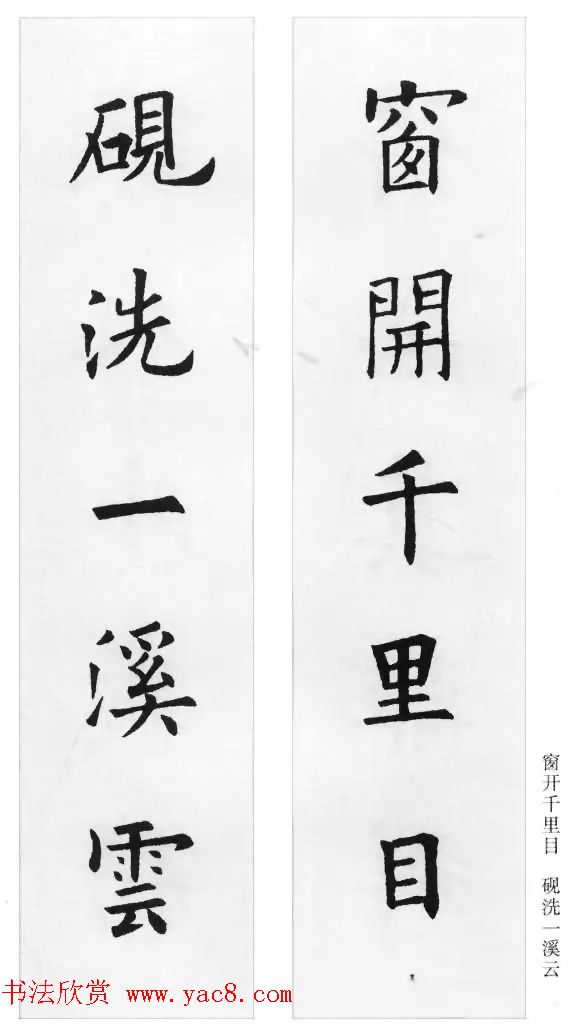 窗開千里目
硯洗一溪雲
窗开千里目 砚洗一溪云
书法欣赏 www.yac8.com